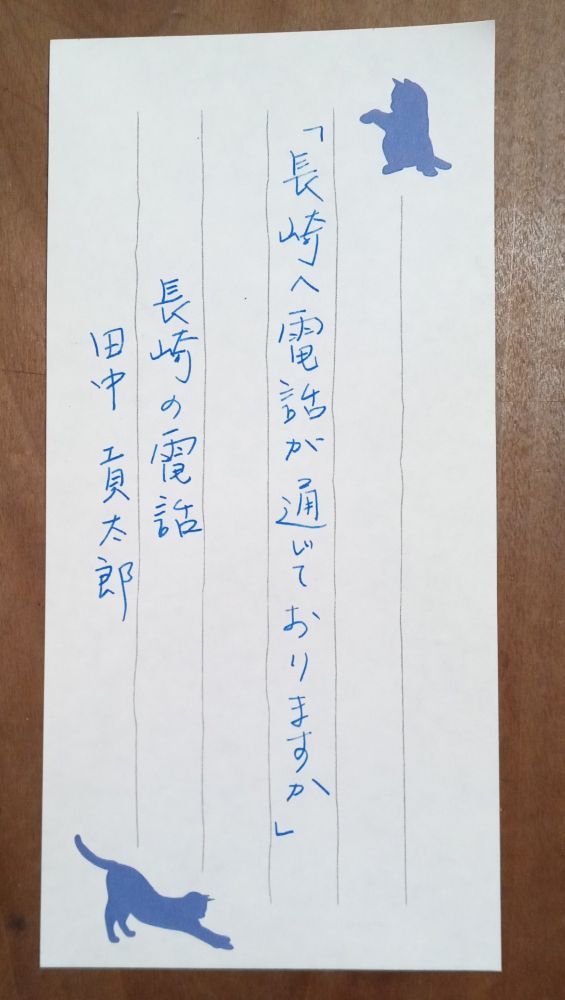 「長崎へ電話が通じておりますか」
長崎の電話
田中 貢太郎